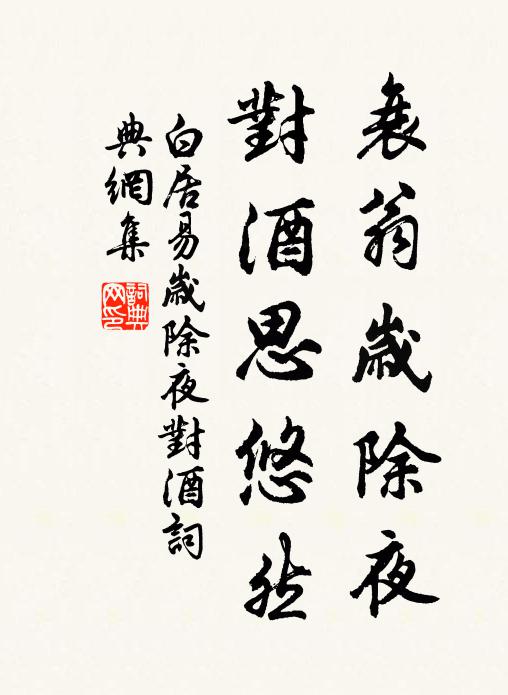 衰翁歲除夜
對酒思悠然
白居易歲除夜對酒詞
典網集
詞典網印